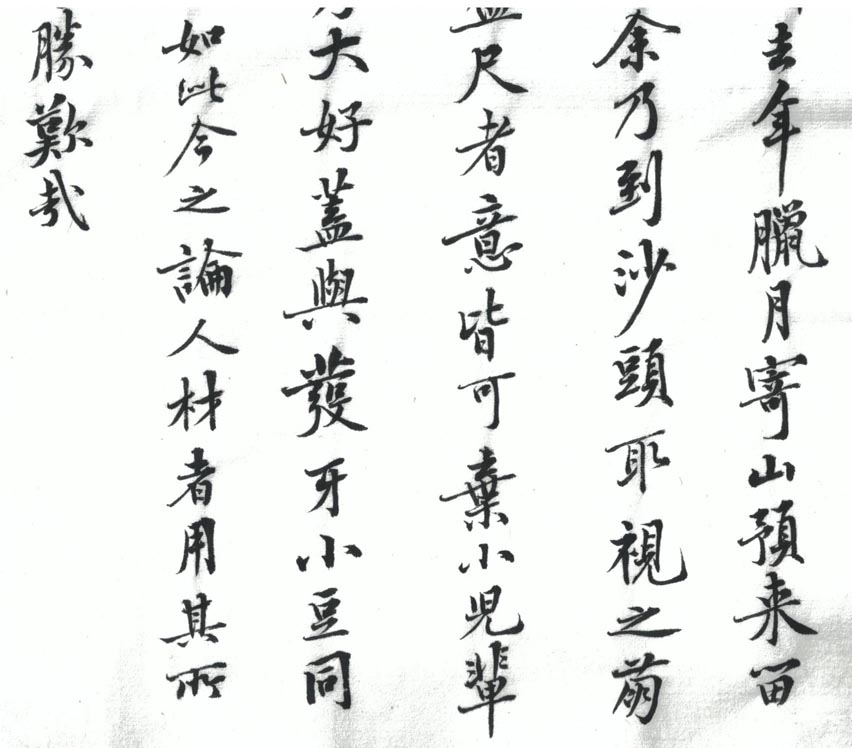 去年臘月寄山預来留
余乃到沙頭取視之萌
尺者意皆可棄小児輩
大好蓋與發牙小豆同
如此今之論人材者用其所
勝歎哉